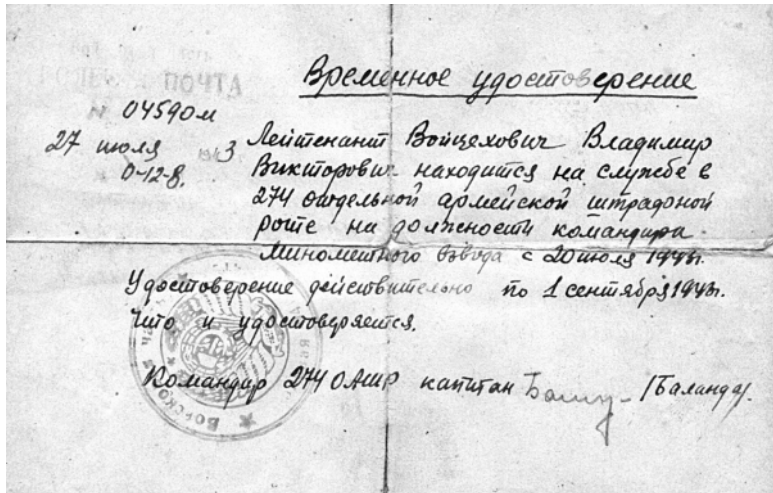 Временное удостоверение
ПОЛЕВАЯ ПОЧТА
№ 04590м
27 июля 3
0-12-8.
Лейтенант Войцехович Владимир
Викторович находится на службе в
274 отдельной армейской штрадной
роте на должности командира
Минометного взвода с 20 июля 1943г.
Удостоверение действительно по 1 сентября 1943г.
Что и удостоверяется.
Командир 274 ОАШР капитан /Баланда/.